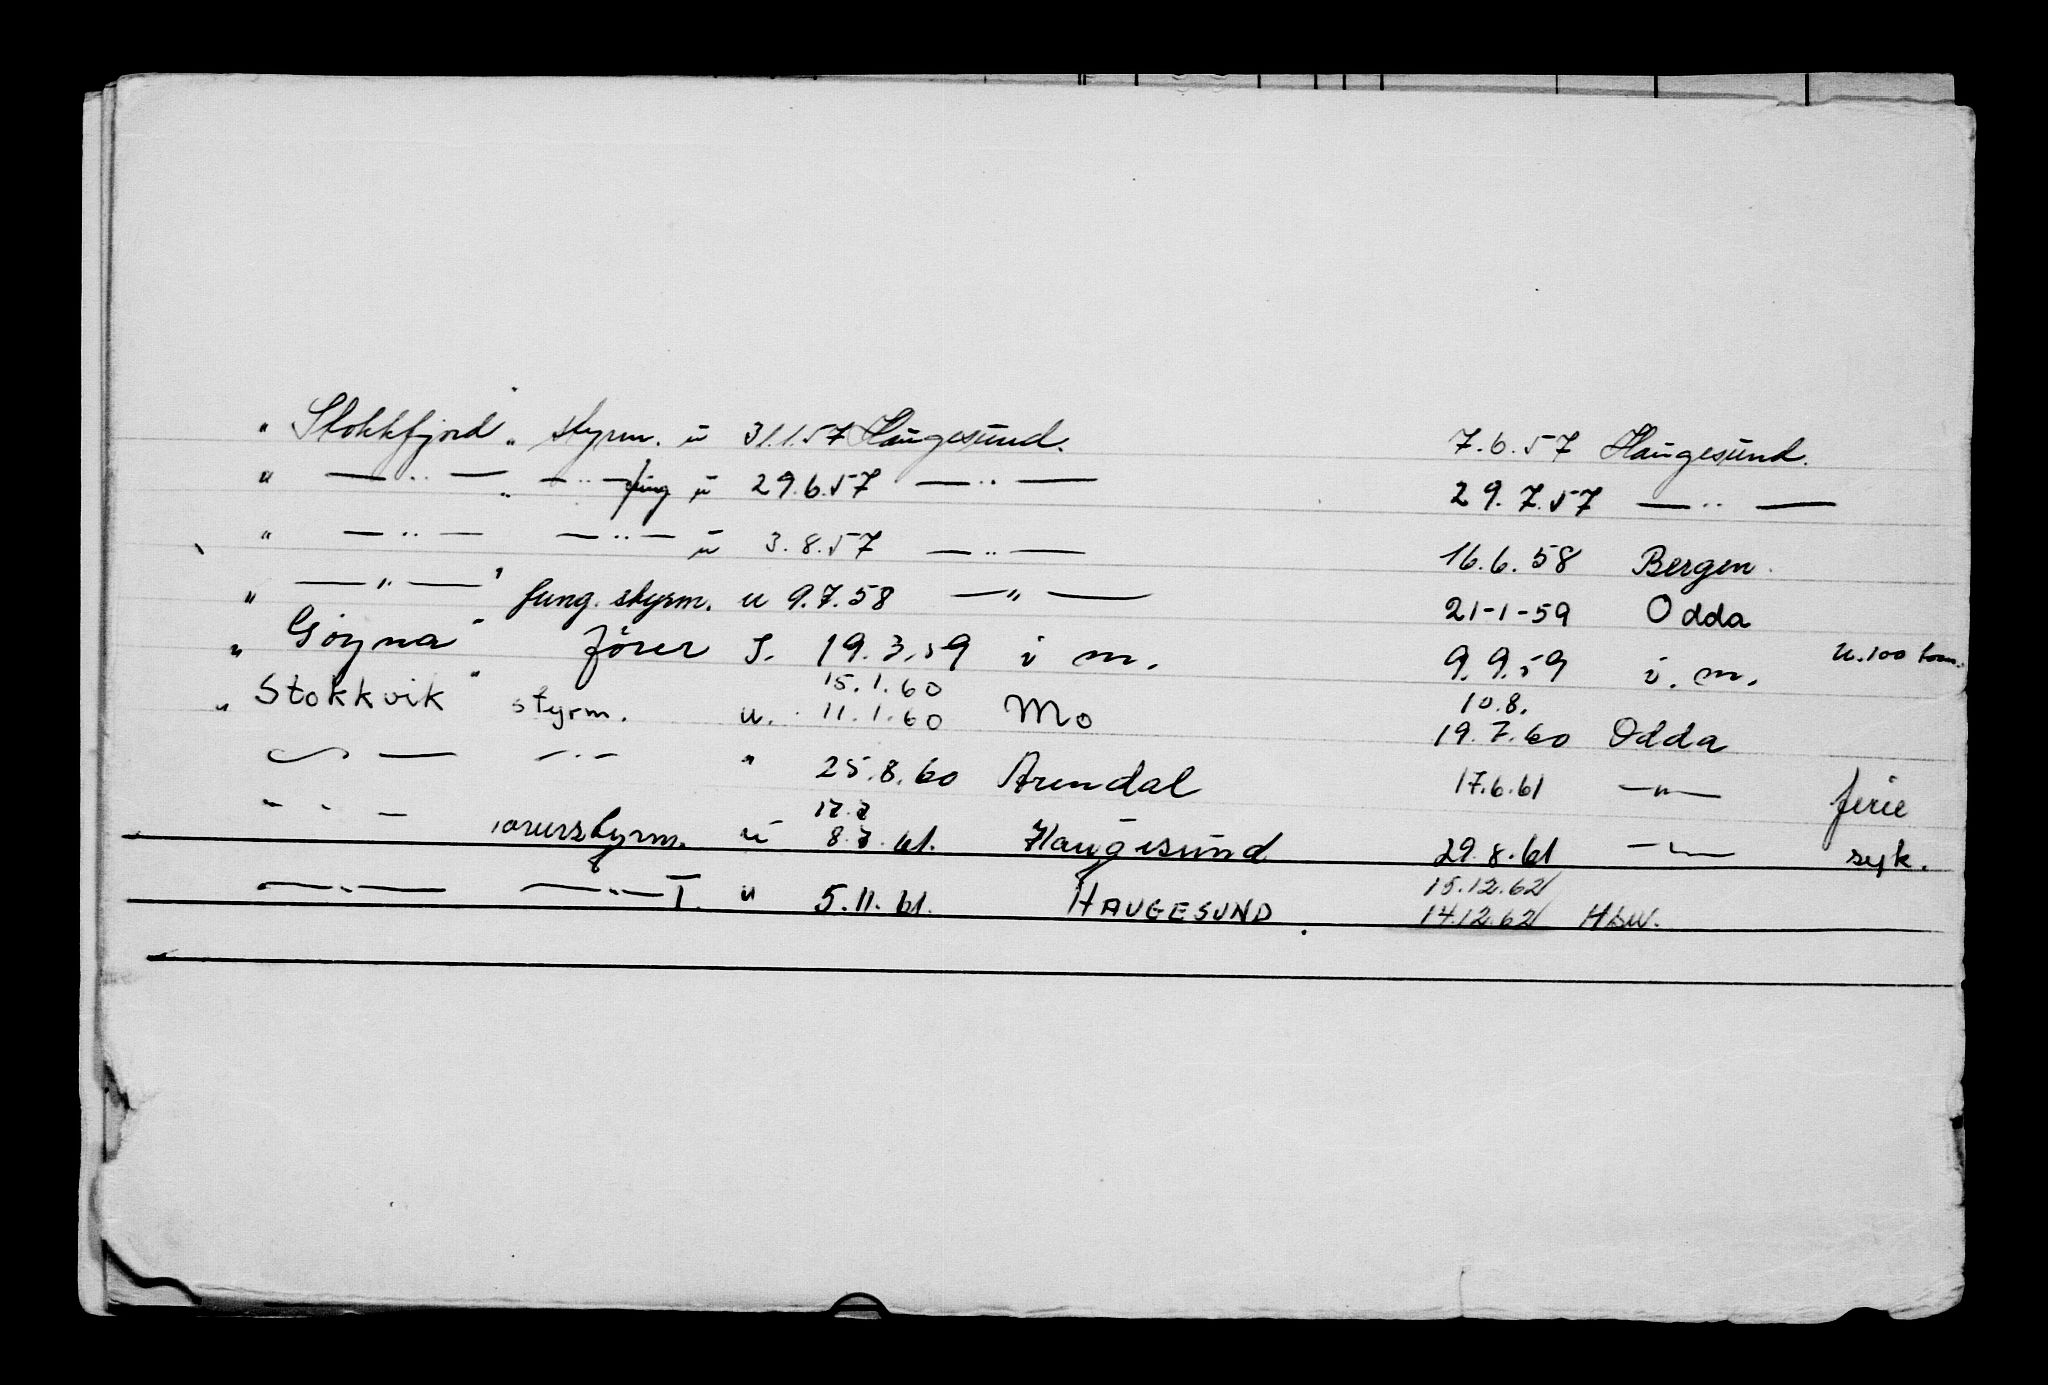 " Stokkfjord " styrm. u 31.1.57 Haugesund. 7.6.57 Haugesund.
" — " — " — " — fung u 29.6.57 — " — 29.7.57 — " —
" — " — — " — u 3.8.57 — " — 16.6.58 Bergen.
" — " — " fung. styrm. u 9.7.58 — " — 21-1-59 Odda
" Goyna " förer S. 19.3.59 i m. 9.9.59 i. m. u. 100 tonn.
15.1.60 10.8.
" Stokkvik " styrm. u. 11.1.60 Mo 19.7.60 Odda
— " — — " — " 25.8.60 Arendal 17.6.61 — " — ferie
17.7
— " — overstyrm. u 8.7.61. Haugesund 29.8.61 — " — syk.
15.12.62
— " — — " — I. u 5.11.61. HAUGESUND. 14.12.62